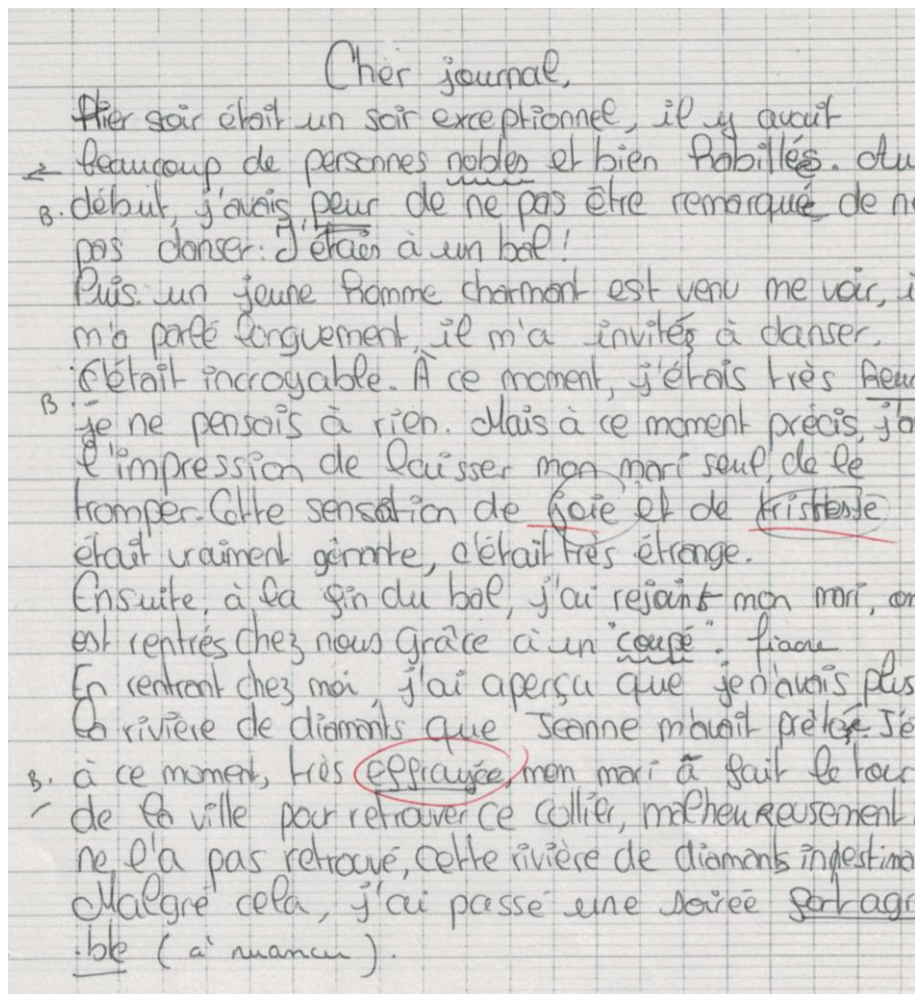 Cher journal,
Hier soir était un soir exceptionnel, il y avait
beaucoup de personnes nobles et bien habillés. Au
B. début, j'avais peur de ne pas être remarqué de n
pas danser. J'étais à un bal !
Puis un jeune homme charmant est venu me voir, i
m'a parlé longuement, il m'a invités à danser.
C'était incroyable. À ce moment, j'étais très heur
B. je ne pensais à rien. Mais à ce moment précis, j'a
l'impression de laisser mon mari seul, de le
tromper. Cette sensation de joie et de tristesse
était vraiment gênante, c'était très étrange.
Ensuite, à la fin du bal, j'ai rejoint mon mari, on
est rentrés chez nous grâce à un "coupé". fiacre
En rentrent chez moi, j'ai aperçu que je n'avais plus
la rivière de diamants que Jeanne m'avait prêtée J'é
B. à ce moment, très effrayée, mon mari à fait le tour
de la ville pour retrouver ce collier, malheureusement
ne l'a pas retrouvé, cette rivière de diamants indestima
Malgré cela, j'ai passé une soirée fort agr
ble (à nuancer).